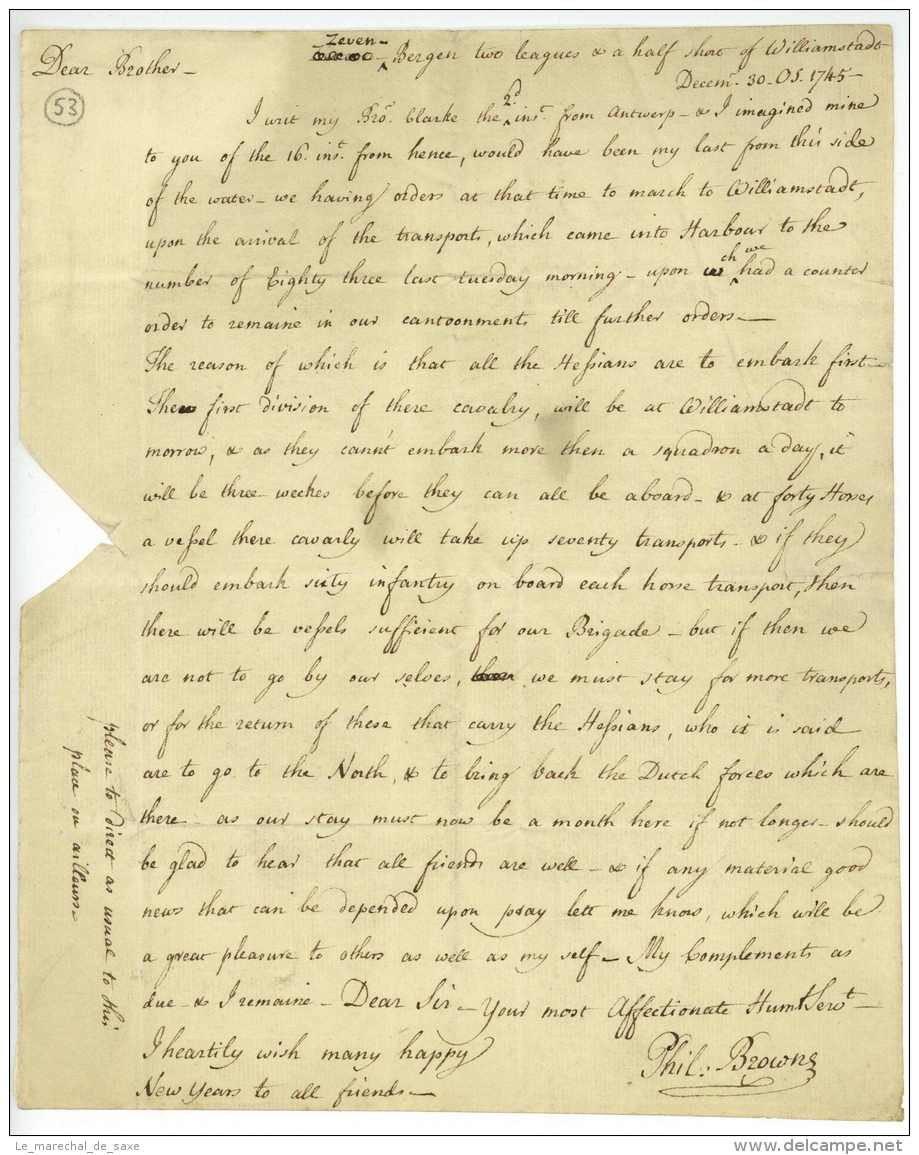 Zeven-
Bergen two leagues & a half short of Williamstadt
Dear Brother-
Decemr. 30. OS. 1745-
53
I writ my Bror. Clarke the 2d. inst. from Antwerp - & I imagined mine
to you of the 16. inst. from hence, would have been my last from this side
of the water - we having orders at that time to march to Williamstadt,
upon the arrival of the transports, which came into Harbour to the
number of Eighty three last tuesday morning - upon wch we had a counter
order to remaine in our cantoonments till further orders -
The reason of which is that all the Hessians are to embark first -
The first division of there cavalry, will be at Williamstadt to
morrow, & as they cann't embark more then a squadron a day, it
will be three weekes before they can all be aboard - & at forty Horses
a vessel there cavarly will take up seventy transports - & if they
should embark sixty infantry on board each horse transport, then
there will be vessels sufficient for our Brigade - but if then we
are not to go by our selves, we must stay for more transports,
or for the return of these that carry the Hessians, who it is said
are to go to the North, & to bring back the Dutch forces which are
there - as our stay must now be a month here if not longer - should
be glad to hear that all friends are well - & if any material good
news that can be depended upon pray lett me know, which will be
a great pleasure to others as well as my self - My Complements as
due - & I remaine - Dear Sir - Your most Affectionate Humt Servt -
I heartily wish many happy
New Years to all friends -
Phil: Browne
please to direct as usual to this
place ou ailleurs -
Le_marechal_de_saxe
delcampe.net